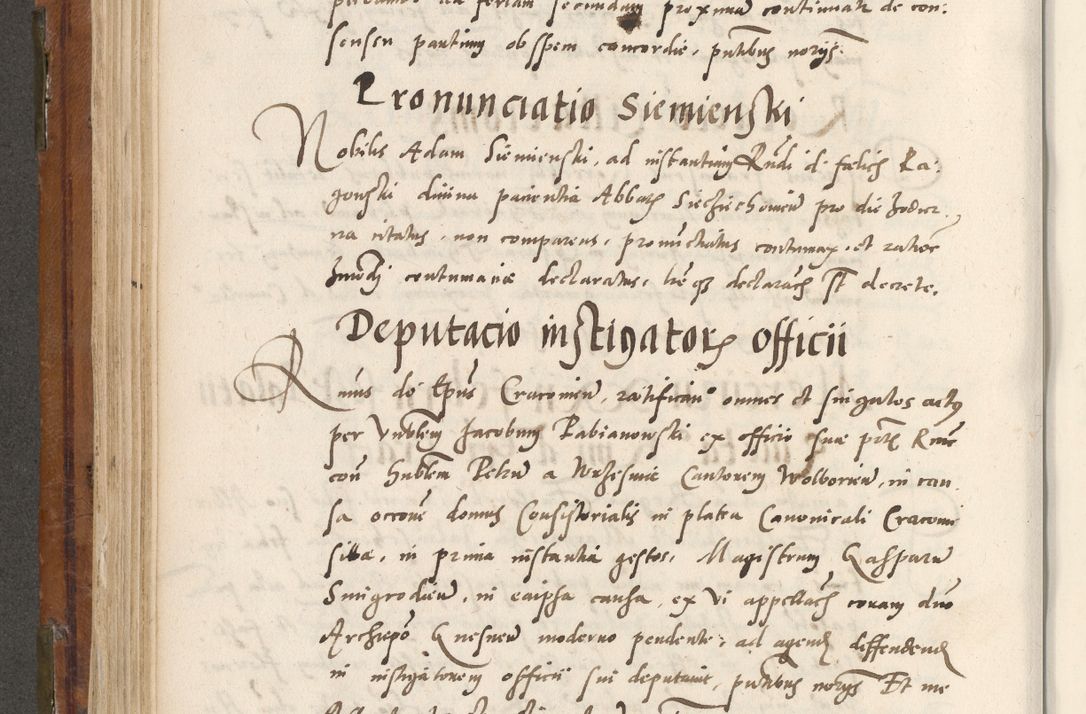 feriam secundam proximam continuat de con:
sensu partium ob spem concordie, pntibus norijs.
Pronunciatio Siemienski
Nobilis Adam Siemienski, ad instantiam Rndi d. felicis Ra:
gowski divina patientia Abbatis Sieciechovien pro die hodier
na citatus, non comparens, pronunctiatus contumax, et ratione
hmodi contumacie declaratus, lreqz declaratorie st decrete.
Deputacio instigatoris officii
Rmus dns Epus Cracovien, ratificans omnes et singulos actus
per Vnblem Jacobum Rabianowski ex officio sue pris Rme
con hnblem Petrum a Wrzesnie Cantorem Wolborien, in cau
sa occone domus Consistorialis in platea Canonicali Cracovien
sitae, in prima instantia gestos, Magistrum Gasparum
Smigrodien, in eaipsa causa, ex vi appellacis coram dno
Archiepo Gnesnen moderno pendente, ad agend deffendend
in instigatorem officii sui deputavit, pntibus norijs Et me